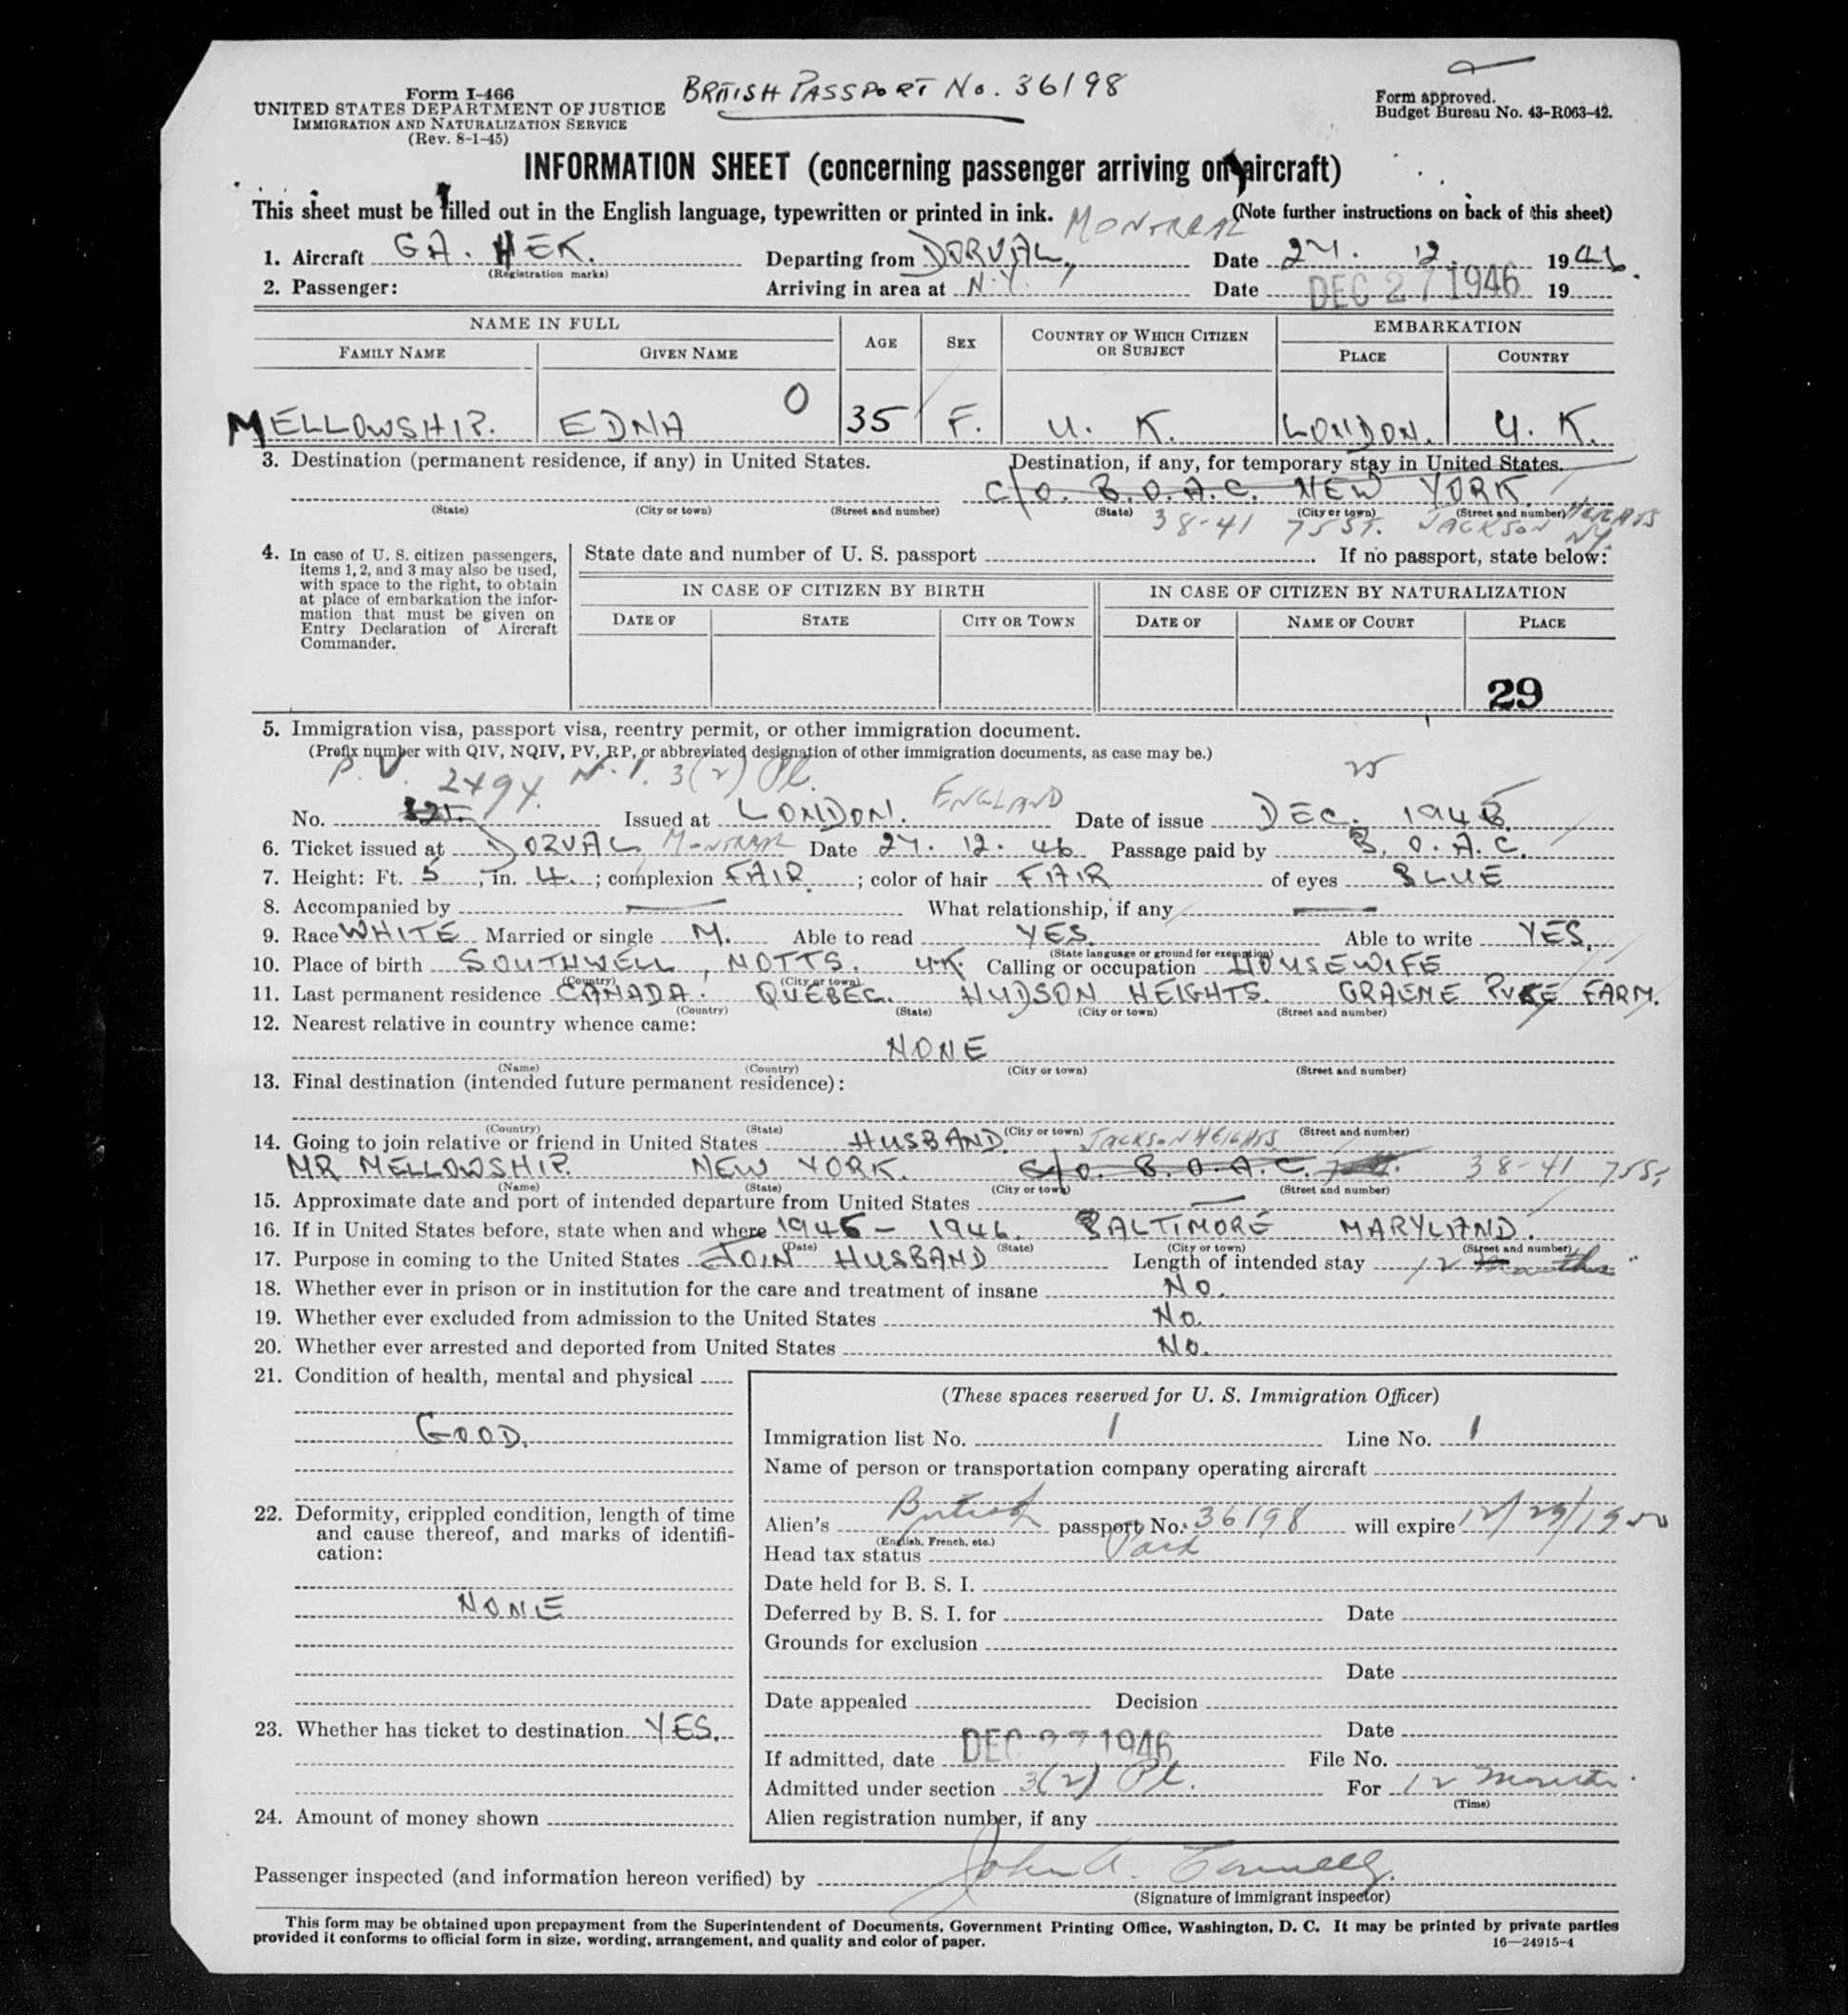 BRITISH PASSPORT No. 36198
Form I-466
UNITED STATES DEPARTMENT OF JUSTICE
IMMIGRATION AND NATURALIZATION SERVICE
(Rev. 8-1-45)
Form approved.
Budget Bureau No. 43-R063-42.
INFORMATION SHEET (concerning passenger arriving on aircraft)
This sheet must be filled out in the English language, typewritten or printed in ink. (Note further instructions on back of this sheet)
MONTREAL
1. Aircraft GA. HEK. Departing from DORVAL, Date 27. 12. 1946.
(Registration marks)
2. Passenger: Arriving in area at N.Y. Date DEC 27 1946 19
NAME IN FULL AGE SEX COUNTRY OF WHICH CITIZEN OR SUBJECT EMBARKATION
FAMILY NAME GIVEN NAME PLACE COUNTRY
0
MELLOWSHIP. EDNA 35 F. U. K. LONDON. U. K.
3. Destination (permanent residence, if any) in United States. Destination, if any, for temporary stay in United States.
C/O. B.O.A.C. NEW YORK
(State) (City or town) (Street and number) (State) (City or town) (Street and number)
38-41 75 ST. JACKSON HEIGHTS NY
4. In case of U. S. citizen passengers, items 1, 2, and 3 may also be used, with space to the right, to obtain at place of embarkation the information that must be given on Entry Declaration of Aircraft Commander.
State date and number of U. S. passport If no passport, state below:
IN CASE OF CITIZEN BY BIRTH IN CASE OF CITIZEN BY NATURALIZATION
DATE OF STATE CITY OR TOWN DATE OF NAME OF COURT PLACE
29
5. Immigration visa, passport visa, reentry permit, or other immigration document.
(Prefix number with QIV, NQIV, PV, RP, or abbreviated designation of other immigration documents, as case may be.)
P.V. 2494. 3(2) Pl. 25
No. Issued at LONDON. ENGLAND Date of issue DEC. 1945
6. Ticket issued at DORVAL MONTREAL Date 27. 12. 46 Passage paid by B. O. A. C.
7. Height: Ft. 5, in. 4.; complexion FAIR.; color of hair FAIR of eyes BLUE
8. Accompanied by — What relationship, if any —
9. Race WHITE Married or single M. Able to read YES. Able to write YES.
(State language or ground for exemption)
10. Place of birth SOUTHWELL, NOTTS. U.K. Calling or occupation HOUSEWIFE
(Country) (City or town)
11. Last permanent residence CANADA. QUEBEC. HUDSON HEIGHTS. GRAEME FARM.
(Country) (State) (City or town) (Street and number)
12. Nearest relative in country whence came:
NONE
(Name) (Country) (City or town) (Street and number)
13. Final destination (intended future permanent residence):
(Country) (State) (City or town) (Street and number)
14. Going to join relative or friend in United States HUSBAND. JACKSON HEIGHTS
MR MELLOWSHIP. NEW YORK. C/O. B.O.A.C. 38-41 75 St
(Name) (State) (City or town) (Street and number)
15. Approximate date and port of intended departure from United States —
16. If in United States before, state when and where 1945 - 1946. BALTIMORE MARYLAND.
(Date) (State) (City or town) (Street and number)
17. Purpose in coming to the United States JOIN HUSBAND Length of intended stay 12 months
18. Whether ever in prison or in institution for the care and treatment of insane No.
19. Whether ever excluded from admission to the United States No.
20. Whether ever arrested and deported from United States No.
21. Condition of health, mental and physical
GOOD.
22. Deformity, crippled condition, length of time and cause thereof, and marks of identification:
NONE
23. Whether has ticket to destination YES.
24. Amount of money shown
(These spaces reserved for U. S. Immigration Officer)
Immigration list No. 1 Line No. 1
Name of person or transportation company operating aircraft
Alien's British passport No. 36198 will expire 12/29/1950
(English, French, etc.)
Head tax status Paid
Date held for B. S. I.
Deferred by B. S. I. for Date
Grounds for exclusion
Date
Date appealed Decision
Date
If admitted, date DEC 27 1946 File No.
Admitted under section 3(2) Pl. For 12 months
(Time)
Alien registration number, if any
Passenger inspected (and information hereon verified) by John A.
(Signature of immigrant inspector)
This form may be obtained upon prepayment from the Superintendent of Documents, Government Printing Office, Washington, D. C. It may be printed by private parties
provided it conforms to official form in size, wording, arrangement, and quality and color of paper. 16—24915-4